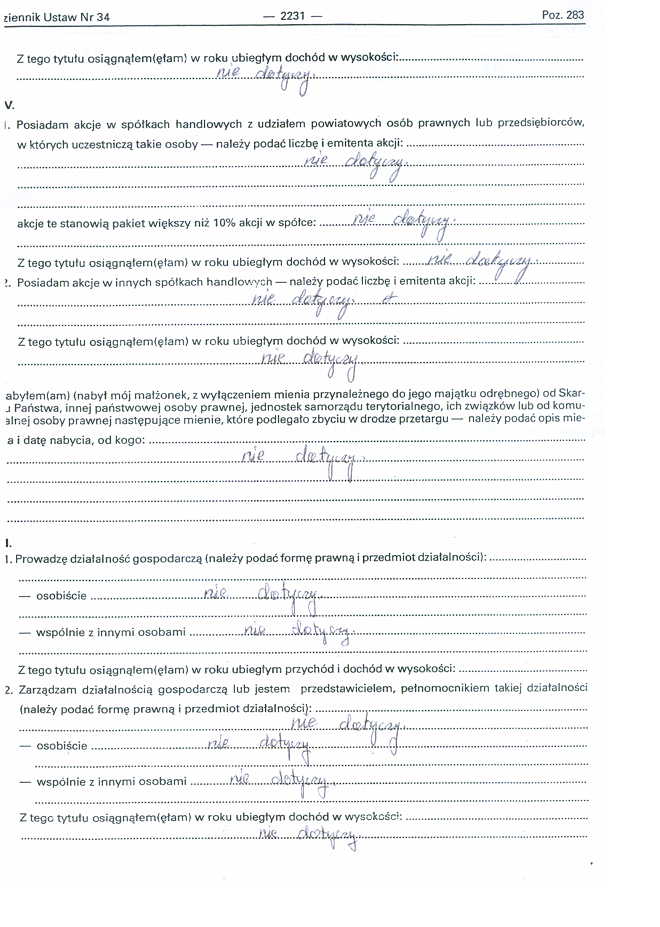 ziennik Ustaw Nr 34 — 2231 — Poz. 283
Z tego tytułu osiągnąłem(ęłam) w roku ubiegłym dochód w wysokości:
nie dotyczy.
V.
1. Posiadam akcje w spółkach handlowych z udziałem powiatowych osób prawnych lub przedsiębiorców,
w których uczestniczą takie osoby — należy podać liczbę i emitenta akcji:
nie dotyczy.
akcje te stanowią pakiet większy niż 10% akcji w spółce: nie dotyczy.
Z tego tytułu osiągnąłem(ęłam) w roku ubiegłym dochód w wysokości: nie dotyczy.
2. Posiadam akcje w innych spółkach handlowych — należy podać liczbę i emitenta akcji:
nie dotyczy.
Z tego tytułu osiągnąłem(ęłam) w roku ubiegłym dochód w wysokości:
nie dotyczy
abyłem(am) (nabył mój małżonek, z wyłączeniem mienia przynależnego do jego majątku odrębnego) od Skar-
u Państwa, innej państwowej osoby prawnej, jednostek samorządu terytorialnego, ich związków lub od komu-
alnej osoby prawnej następujące mienie, które podlegało zbyciu w drodze przetargu — należy podać opis mie-
a i datę nabycia, od kogo:
nie dotyczy.
I.
1. Prowadzę działalność gospodarczą (należy podać formę prawną i przedmiot działalności):
— osobiście nie dotyczy.
— wspólnie z innymi osobami nie dotyczy.
Z tego tytułu osiągnąłem(ęłam) w roku ubiegłym przychód i dochód w wysokości:
2. Zarządzam działalnością gospodarczą lub jestem przedstawicielem, pełnomocnikiem takiej działalności
(należy podać formę prawną i przedmiot działalności):
nie dotyczy.
— osobiście nie dotyczy
— wspólnie z innymi osobami nie dotyczy.
Z tego tytułu osiągnąłem(ęłam) w roku ubiegłym dochód w wysokości:
nie dotyczy